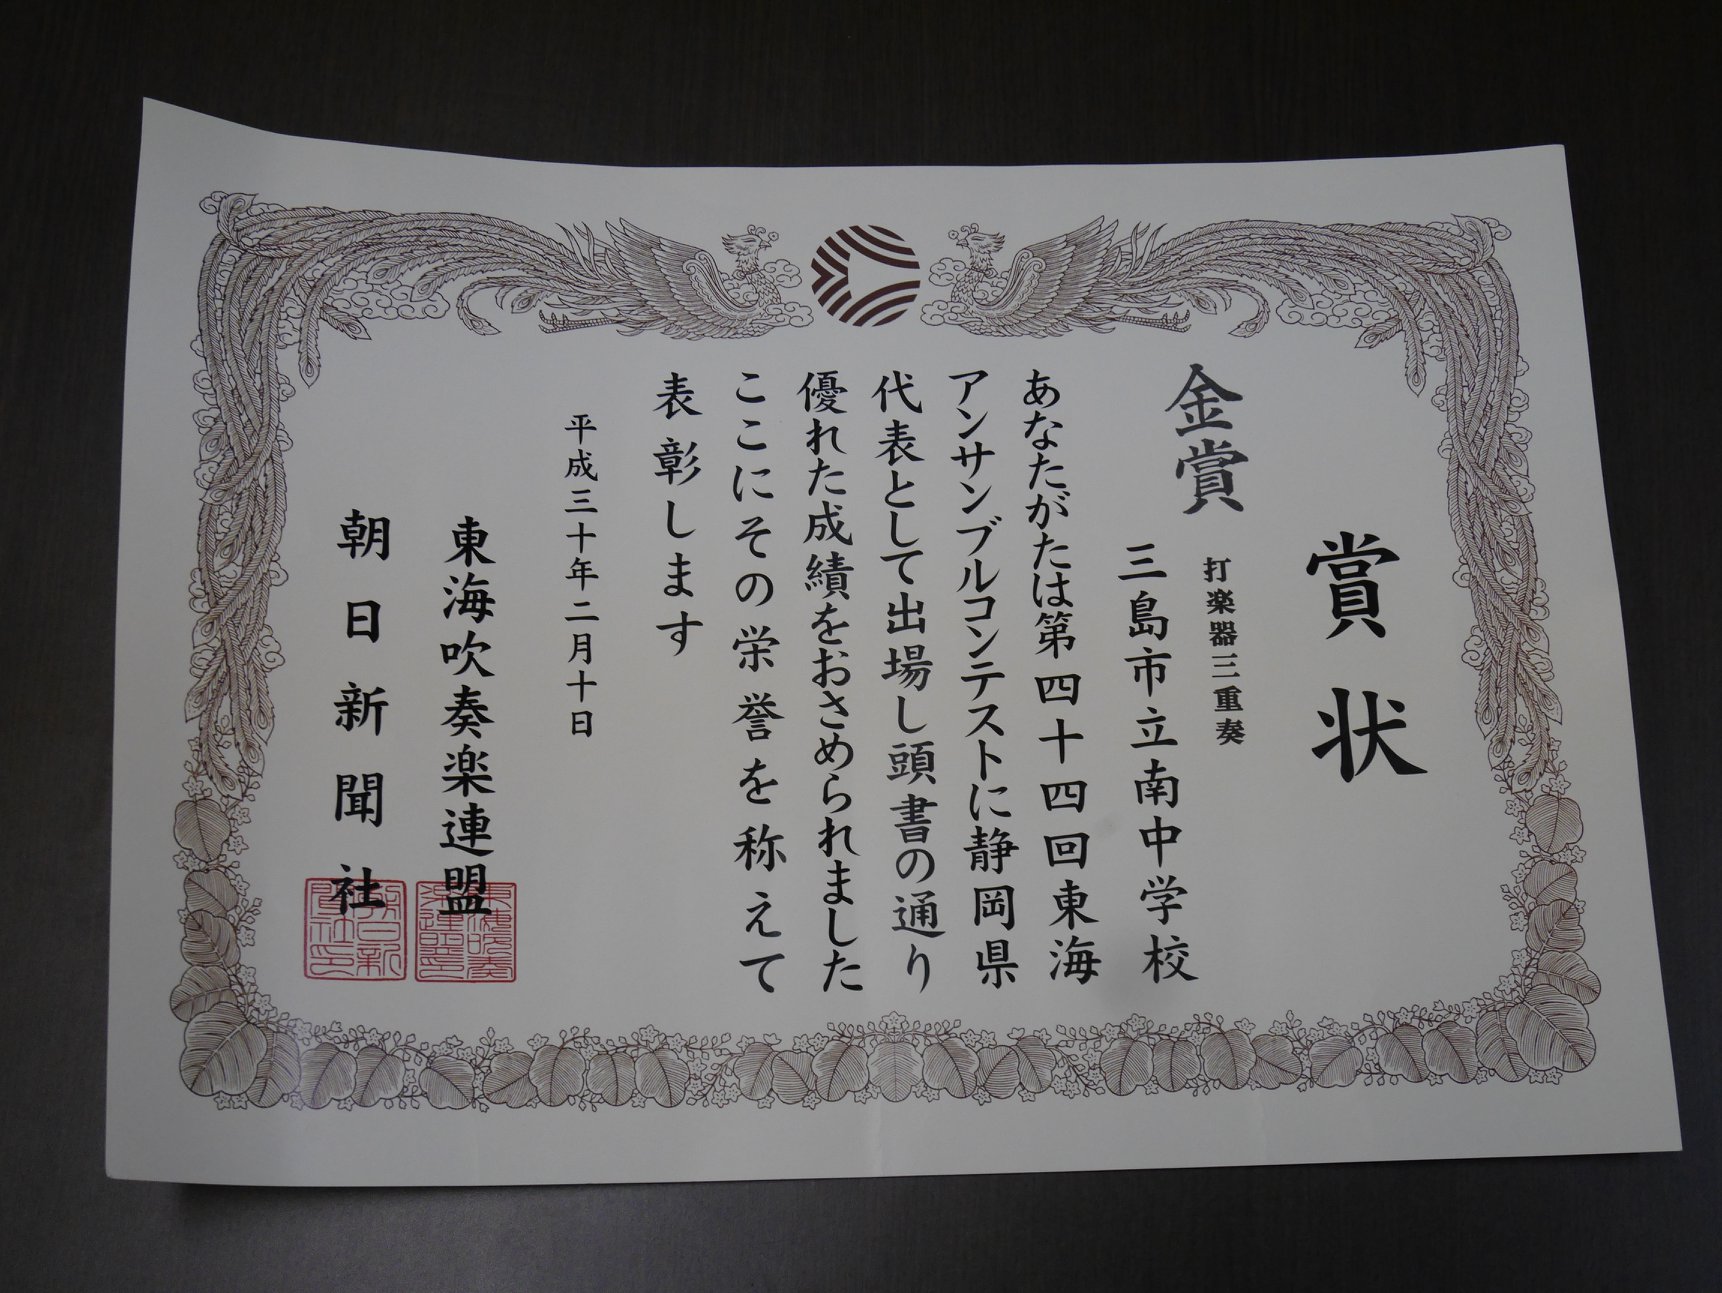 賞状
金賞
打楽器三重奏
三島市立南中学校
あなたがたは第四十四回東海
アンサンブルコンテストに静岡県
代表として出場し頭書の通り
優れた成績をおさめられました
ここにその栄誉を称えて
表彰します
平成三十年二月十日
東海吹奏楽連盟
朝日新聞社